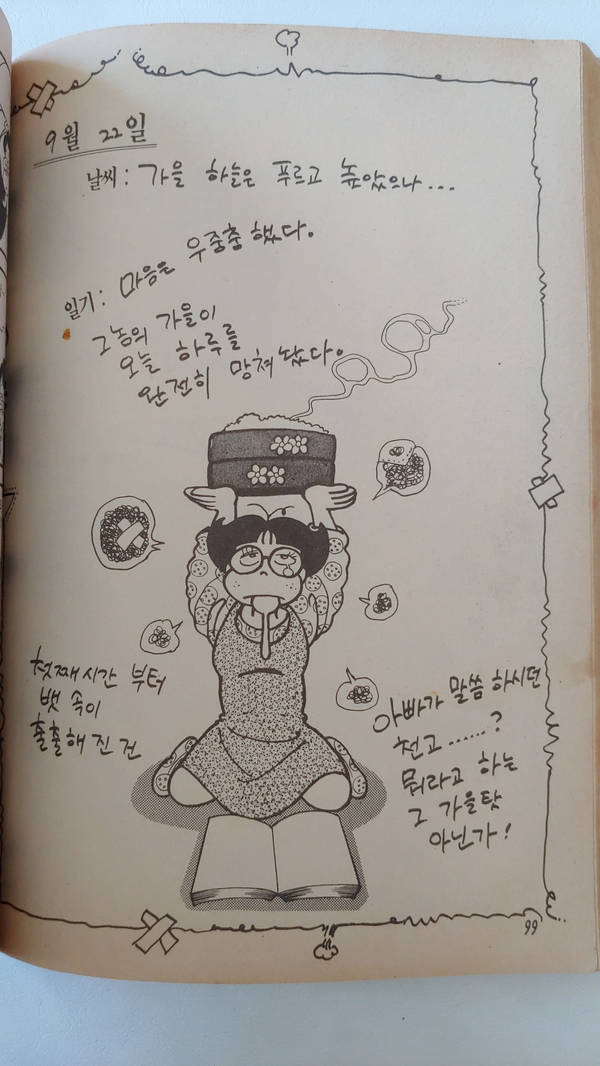 9월 22일
날씨: 가을 하늘은 푸르고 높았으나...
일기: 마음은 우중충 했다.
그놈의 가을이
오늘 하루를
완전히 망쳐 놨다.
첫째 시간 부터
뱃 속이
출출해 진 건
아빠가 말씀 하시던
천고......?
뭐라고 하는
그 가을탓
아닌가!
99